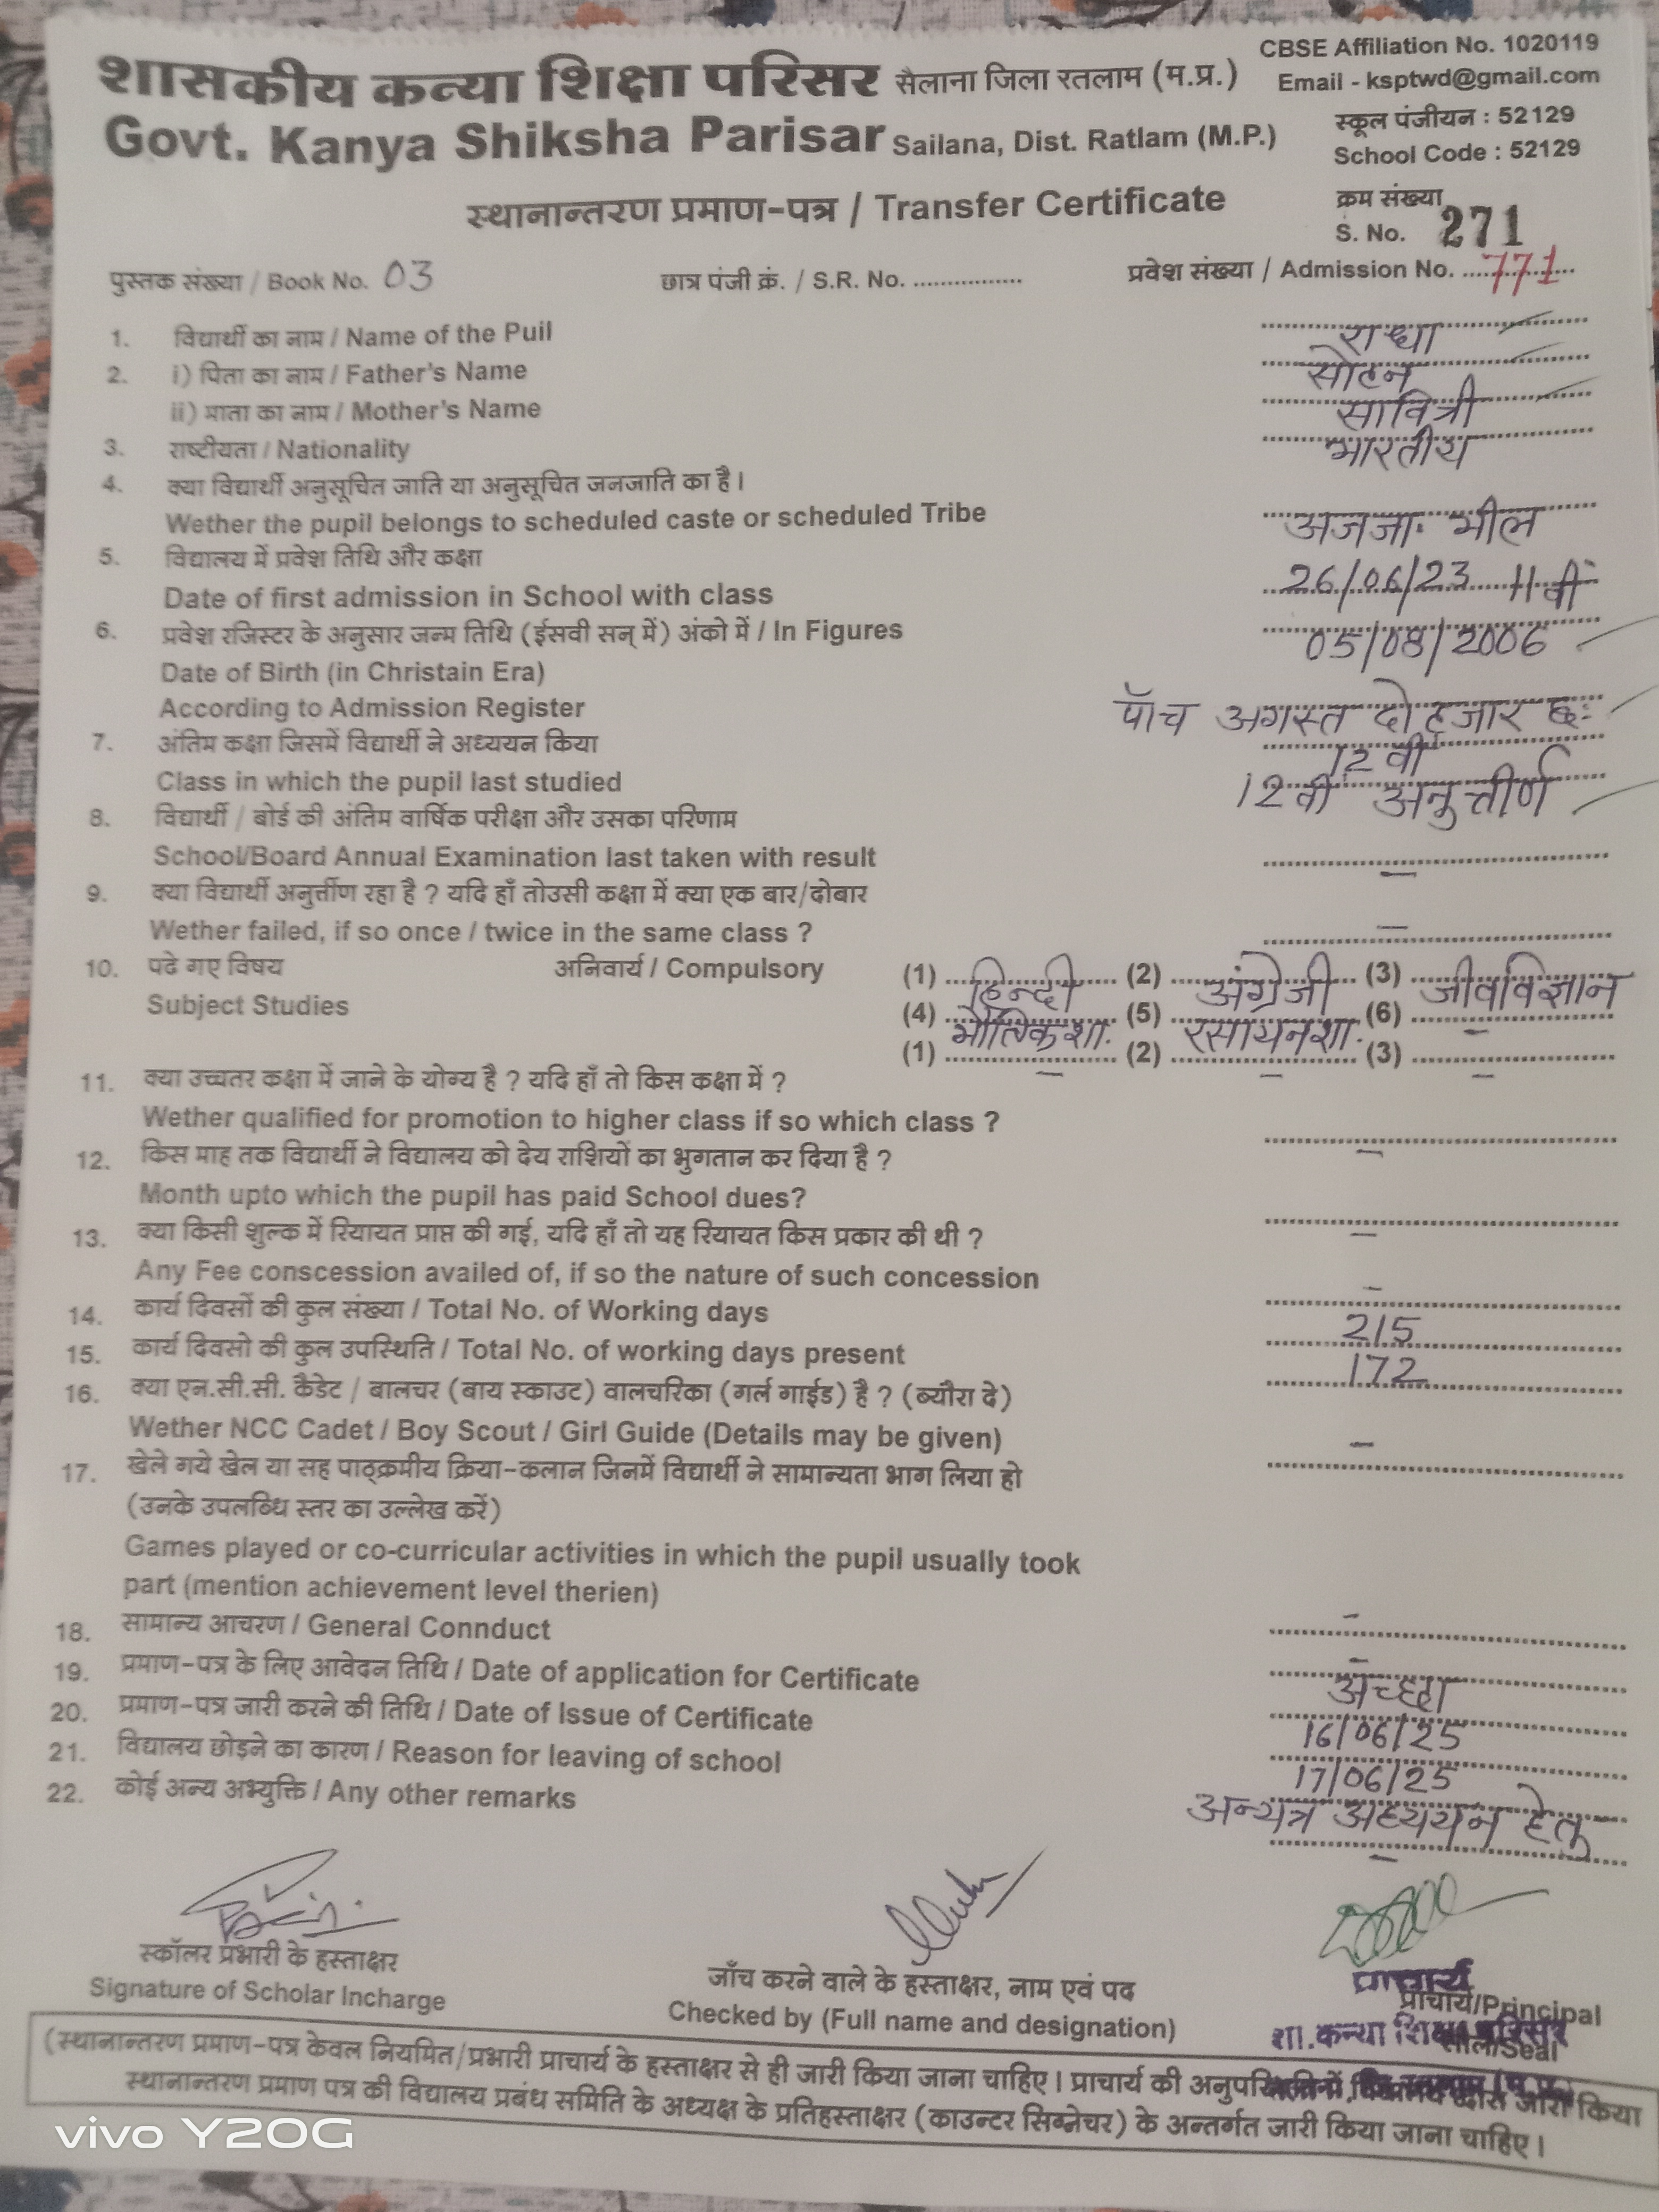 CBSE Affiliation No. 1020119
शासकीय कन्या शिक्षा परिसर सैलाना जिला रतलाम (म.प्र.)
Email - ksptwd@gmail.com
Govt. Kanya Shiksha Parisar Sailana, Dist. Ratlam (M.P.)
स्कूल पंजीयन : 52129
School Code : 52129
स्थानान्तरण प्रमाण-पत्र / Transfer Certificate
क्रम संख्या
S. No. 271
पुस्तक संख्या / Book No. 03 छात्र पंजी क्रं. / S.R. No. ................ प्रवेश संख्या / Admission No. 771
1. विद्यार्थी का नाम / Name of the Puil राधा
2. i) पिता का नाम / Father's Name सोहन
ii) माता का नाम / Mother's Name सावित्री
3. राष्टीयता / Nationality भारतीय
4. क्या विद्यार्थी अनुसूचित जाति या अनुसूचित जनजाति का है।
Wether the pupil belongs to scheduled caste or scheduled Tribe अजजा. भील
5. विद्यालय में प्रवेश तिथि और कक्षा
Date of first admission in School with class 26/06/23 11वीं
6. प्रवेश रजिस्टर के अनुसार जन्म तिथि (ईसवी सन् में) अंको में / In Figures 05/08/2006
Date of Birth (in Christain Era)
According to Admission Register पॉच अगस्त दो हजार छः
7. अंतिम कक्षा जिसमें विद्यार्थी ने अध्ययन किया 12वी
Class in which the pupil last studied 12वी अनुत्तीर्ण
8. विद्यार्थी / बोर्ड की अंतिम वार्षिक परीक्षा और उसका परिणाम
School/Board Annual Examination last taken with result –
9. क्या विद्यार्थी अनुर्त्तीण रहा है ? यदि हाँ तोउसी कक्षा में क्या एक बार/दोबार
Wether failed, if so once / twice in the same class ? –
10. पढे गए विषय अनिवार्य / Compulsory (1) हिन्दी (2) अंग्रेजी (3) जीवविज्ञान
Subject Studies (4) भौतिकशा. (5) रसायनशा. (6) –
(1) – (2) – (3) –
11. क्या उच्चतर कक्षा में जाने के योग्य है ? यदि हाँ तो किस कक्षा में ?
Wether qualified for promotion to higher class if so which class ? –
12. किस माह तक विद्यार्थी ने विद्यालय को देय राशियों का भुगतान कर दिया है ?
Month upto which the pupil has paid School dues? –
13. क्या किसी शुल्क में रियायत प्राप्त की गई, यदि हाँ तो यह रियायत किस प्रकार की थी ?
Any Fee conscession availed of, if so the nature of such concession –
14. कार्य दिवसों की कुल संख्या / Total No. of Working days 215
15. कार्य दिवसो की कुल उपस्थिति / Total No. of working days present 172
16. क्या एन.सी.सी. कैडेट / बालचर (बाय स्काउट) वालचरिका (गर्ल गाईड) है ? (ब्यौरा दे)
Wether NCC Cadet / Boy Scout / Girl Guide (Details may be given) –
17. खेले गये खेल या सह पाठ्क्रमीय क्रिया-कलान जिनमें विद्यार्थी ने सामान्यता भाग लिया हो
(उनके उपलब्धि स्तर का उल्लेख करें)
Games played or co-curricular activities in which the pupil usually took
part (mention achievement level therien) –
18. सामान्य आचरण / General Connduct –
19. प्रमाण-पत्र के लिए आवेदन तिथि / Date of application for Certificate अच्छा
20. प्रमाण-पत्र जारी करने की तिथि / Date of Issue of Certificate 16/06/25
21. विद्यालय छोड़ने का कारण / Reason for leaving of school 17/06/25
22. कोई अन्य अभ्युक्ति / Any other remarks अन्यत्र अध्ययन हेतु
–
स्कॉलर प्रभारी के हस्ताक्षर
Signature of Scholar Incharge
जाँच करने वाले के हस्ताक्षर, नाम एवं पद
Checked by (Full name and designation)
प्राचार्य
प्राचार्य/Principal
शा.कन्या शिक्षा परिसर
सील/Seal
(स्थानान्तरण प्रमाण-पत्र केवल नियमित/प्रभारी प्राचार्य के हस्ताक्षर से ही जारी किया जाना चाहिए। प्राचार्य की जारी किया
स्थानान्तरण प्रमाण पत्र की विद्यालय प्रबंध समिति के अध्यक्ष के प्रतिहस्ताक्षर (काउन्टर सिग्नेचर) के अन्तर्गत जारी किया जाना चाहिए।
vivo Y20G